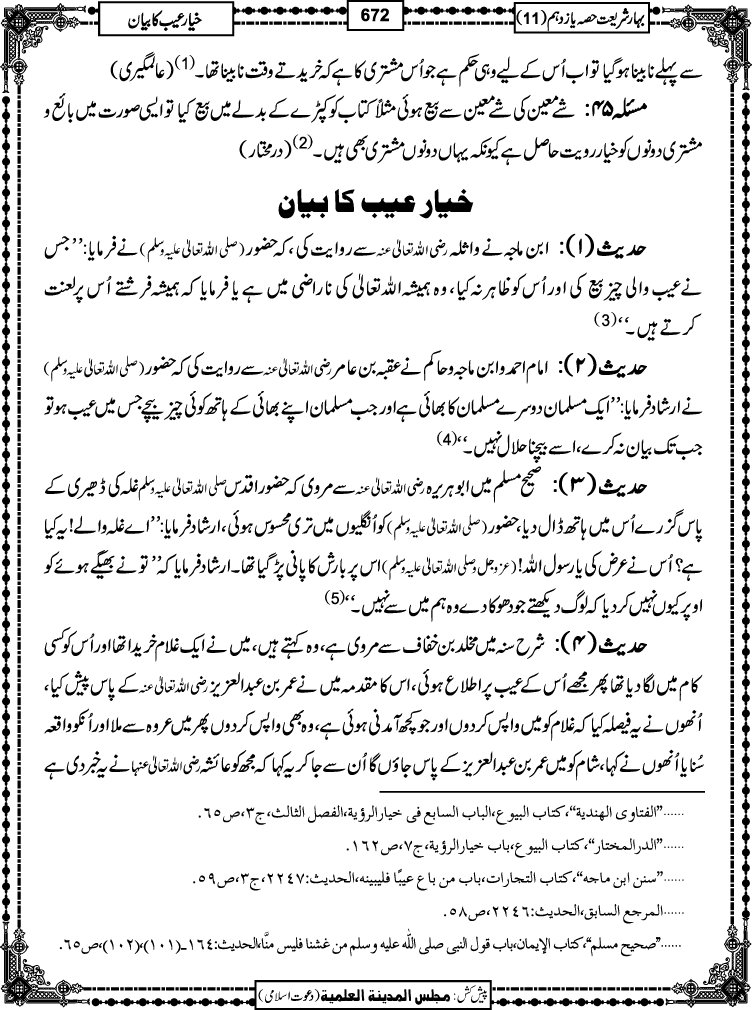 بہار شریعت حصہ یازدہم (11)
672
خیار عیب کا بیان
سے پہلے نابینا ہوگیا تو اب اُس کے لیے وہی حکم ہے جو اُس مشتری کا ہے کہ خریدتے وقت نابینا تھا۔(1) (عالمگیری)
مسئلہ ۴۵: شے معین کی شے معین سے بیع ہوئی مثلاً کتاب کو کپڑے کے بدلے میں بیع کیا تو ایسی صورت میں بائع و
مشتری دونوں کو خیار رویت حاصل ہے کیونکہ یہاں دونوں مشتری بھی ہیں۔(2) (درمختار)
خیار عیب کا بیان
حدیث (۱): ابن ماجہ نے واثلہ رضی اللہ تعالیٰ عنہ سے روایت کی، کہ حضور (صلی اللہ تعالیٰ علیہ وسلم) نے فرمایا: ’’جس
نے عیب والی چیز بیع کی اور اُس کو ظاہر نہ کیا، وہ ہمیشہ اللہ تعالیٰ کی ناراضی میں ہے یا فرمایا کہ ہمیشہ فرشتے اُس پر لعنت
کرتے ہیں۔‘‘(3)
حدیث (۲): امام احمد و ابن ماجہ و حاکم نے عقبہ بن عامر رضی اللہ تعالیٰ عنہ سے روایت کی کہ حضور (صلی اللہ تعالیٰ علیہ وسلم)
نے ارشاد فرمایا: ’’ایک مسلمان دوسرے مسلمان کا بھائی ہے اور جب مسلمان اپنے بھائی کے ہاتھ کوئی چیز بیچے جس میں عیب ہو تو
جب تک بیان نہ کرے، اسے بیچنا حلال نہیں۔‘‘(4)
حدیث (۳): صحیح مسلم میں ابوہریرہ رضی اللہ تعالیٰ عنہ سے مروی کہ حضور اقدس صلی اللہ تعالیٰ علیہ وسلم غلہ کی ڈھیری کے
پاس گزرے اُس میں ہاتھ ڈال دیا، حضور (صلی اللہ تعالیٰ علیہ وسلم) کو اُنگلیوں میں تری محسوس ہوئی، ارشاد فرمایا: ’’اے غلہ والے! یہ کیا
ہے؟ اُس نے عرض کی یا رسول اللہ! (عزوجل وصلی اللہ تعالیٰ علیہ وسلم) اس پر بارش کا پانی پڑ گیا تھا۔ ارشاد فرمایا کہ ’’تو نے بھیگے ہوئے کو
اوپر کیوں نہیں کردیا کہ لوگ دیکھتے جو دھوکا دے وہ ہم میں سے نہیں۔‘‘(5)
حدیث (۴): شرح سنہ میں مخلد بن خفاف سے مروی ہے، وہ کہتے ہیں، میں نے ایک غلام خریدا تھا اور اُس کو کسی
کام میں لگا دیا تھا پھر مجھے اُس کے عیب پر اطلاع ہوئی، اس کا مقدمہ میں نے عمر بن عبدالعزیز رضی اللہ تعالیٰ عنہ کے پاس پیش کیا،
اُنھوں نے یہ فیصلہ کیا کہ غلام کو میں واپس کردوں اور جو کچھ آمدنی ہوئی ہے، وہ بھی واپس کردوں پھر میں عروہ سے ملا اور اُنکو واقعہ
سُنایا اُنھوں نے کہا، شام کو میں عمر بن عبدالعزیز کے پاس جاؤں گا اُن سے جا کر یہ کہا کہ مجھ کو عائشہ رضی اللہ تعالیٰ عنہا نے یہ خبر دی ہے
......”الفتاوی الهندية“، کتاب البیوع، الباب السابع فی خیارالرؤیة، الفصل الثالث، ج۳، ص۶۵.
......”الدرالمختار“، کتاب البیوع، باب خیارالرؤیة، ج۷، ص۱۶۲.
......”سنن ابن ماجه“، کتاب التجارات، باب من باع عیبًا فلیبینه، الحدیث: ۲۲۴۷، ج۳، ص۵۹.
......المرجع السابق، الحدیث: ۲۲۴۶، ص۵۸.
......”صحیح مسلم“، کتاب الإیمان، باب قول النبی صلی الله علیه وسلم من غشنا فلیس منَّا، الحدیث: ۱۶۴۔(۱۰۱)،(۱۰۲)، ص۶۵.
پیش کش: مجلس المدینة العلمیة (دعوت اسلامی)